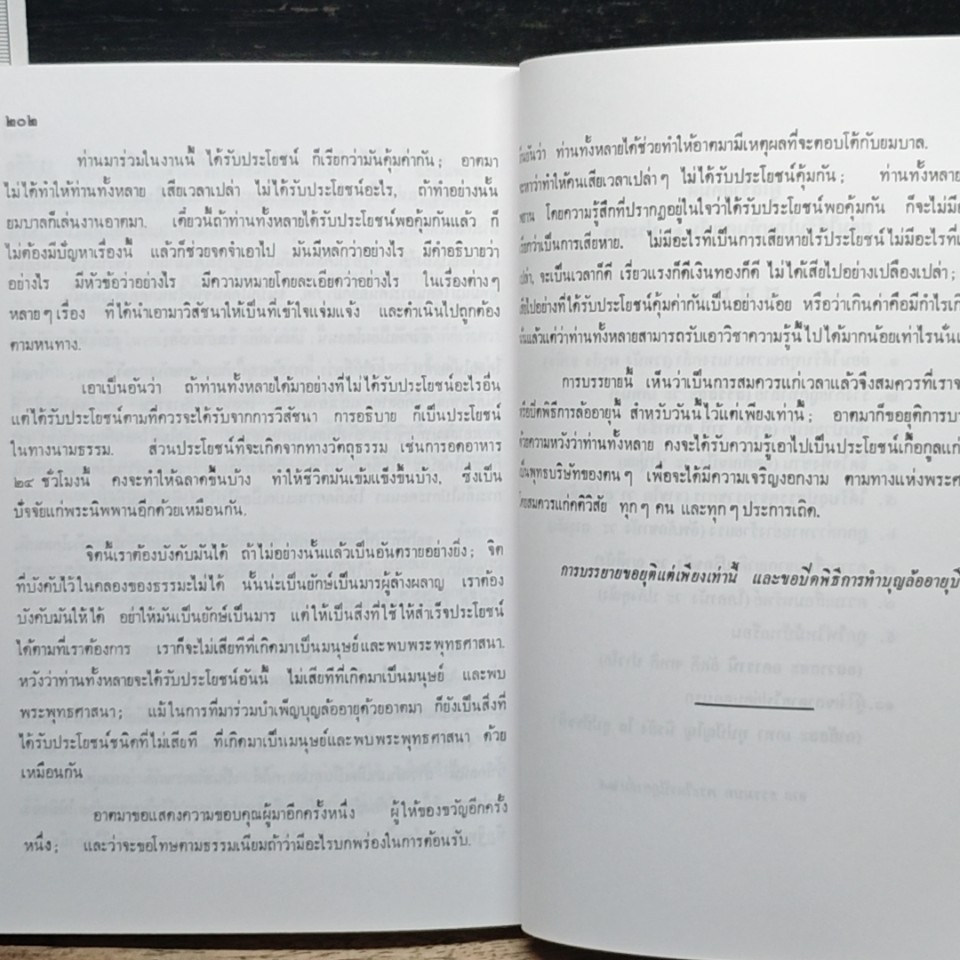 ๒๐๒
ท่านมาร่วมในงานนี้ ได้รับประโยชน์ ก็เรียกว่ามันคุ้มค่ากัน; อาตมา
ไม่ได้ทำให้ท่านทั้งหลาย เสียเวลาเปล่า ไม่ได้รับประโยชน์อะไร, ถ้าทำอย่างนั้น
ยมบาลก็เล่นงานอาตมา. เดี๋ยวนี้ถ้าท่านทั้งหลายได้รับประโยชน์พอคุ้มกันแล้ว ก็
ไม่ต้องมีปัญหาเรื่องนี้ แล้วก็ช่วยจดจำเอาไป มันมีหลักว่าอย่างไร มีคำอธิบายว่า
อย่างไร มีหัวข้อว่าอย่างไร มีความหมายโดยละเอียดว่าอย่างไร ในเรื่องต่างๆ
หลายๆเรื่อง ที่ได้นำเอามาวิสัชนาให้เป็นที่เข้าใจแจ่มแจ้ง และดำเนินไปถูกต้อง
ตามหนทาง.
เอาเป็นอันว่า ถ้าท่านทั้งหลายได้มาอย่างที่ไม่ได้รับประโยชน์อะไรอื่น
แต่ได้รับประโยชน์ตามที่ควรจะได้รับจากการวิสัชนา การอธิบาย ก็เป็นประโยชน์
ในทางนามธรรม. ส่วนประโยชน์ที่จะเกิดจากทางวัตถุธรรม เช่นการอดอาหาร
๒๔ ชั่วโมงนี้ คงจะทำให้ฉลาดขึ้นบ้าง ทำให้ชีวิตมันเข้มแข็งขึ้นบ้าง, ซึ่งเป็น
ปัจจัยแก่พระนิพพานอีกด้วยเหมือนกัน.
จิตนี้เราต้องบังคับมันได้ ถ้าไม่อย่างนั้นแล้วเป็นอันตรายอย่างยิ่ง; จิต
ที่บังคับไว้ในคลองของธรรมะไม่ได้ นั้นน่ะเป็นยักษ์เป็นมารผู้ล้างผลาญ เราต้อง
บังคับมันให้ได้ อย่าให้มันเป็นยักษ์เป็นมาร แต่ให้เป็นสิ่งที่ใช้ให้สำเร็จประโยชน์
ได้ตามที่เราต้องการ เราก็จะไม่เสียทีที่เกิดมาเป็นมนุษย์และพบพระพุทธศาสนา.
หวังว่าท่านทั้งหลายจะได้รับประโยชน์อันนี้ ไม่เสียทีที่เกิดมาเป็นมนุษย์ และพบ
พระพุทธศาสนา; แม้ในการที่มาร่วมบำเพ็ญบุญล้ออายุด้วยอาตมา ก็ยังเป็นสิ่งที่
ได้รับประโยชน์ชนิดที่ไม่เสียที ที่เกิดมาเป็นมนุษย์และพบพระพุทธศาสนา ด้วย
เหมือนกัน
อาตมาขอแสดงความขอบคุณผู้มาอีกครั้งหนึ่ง ผู้ให้ของขวัญอีกครั้ง
หนึ่ง; และว่าจะขอโทษตามธรรมเนียมถ้าว่ามีอะไรบกพร่องในการต้อนรับ.
ท่านทั้งหลายได้ช่วยทำให้อาตมามีเหตุผลที่จะตอบโต้กับยมบาล.
ว่าทำให้คนเสียเวลาเปล่าๆ ไม่ได้รับประโยชน์คุ้มกัน; ท่านทั้งหลาย
โดยความรู้สึกที่ปรากฏอยู่ในใจว่าได้รับประโยชน์พอคุ้มกัน ก็จะไม่มี
ว่าเป็นการเสียหาย. ไม่มีอะไรที่เป็นการเสียหายไร้ประโยชน์ ไม่มีอะไรที่
จะเป็นเวลาก็ดี เรี่ยวแรงก็ดีเงินทองก็ดี ไม่ได้เสียไปอย่างเปลืองเปล่า;
ไปอย่างที่ได้รับประโยชน์คุ้มค่ากันเป็นอย่างน้อย หรือว่าเกินค่าคือมีกำไร
แล้วแต่ว่าท่านทั้งหลายสามารถรับเอาวิชาความรู้นี้ไปได้มากน้อยเท่าไร
การบรรยายนี้ เห็นว่าเป็นการสมควรแก่เวลาแล้วจึงสมควรที่เรา
ปิดพิธีการล้ออายุนี้ สำหรับวันนี้ไว้แต่เพียงเท่านี้; อาตมาก็ขอยุติการ
ความหวังว่าท่านทั้งหลาย คงจะได้รับความรู้เอาไปเป็นประโยชน์เกื้อกูล
พุทธบริษัทของตนๆ เพื่อจะได้มีความเจริญงอกงาม ตามทางแห่ง
สมควรแก่คติวิสัย ทุกๆ คน และทุกๆ ประการเถิด.
การบรรยายขอยุติแต่เพียงเท่านี้ และขอปิดพิธีการทำบุญล้ออายุ